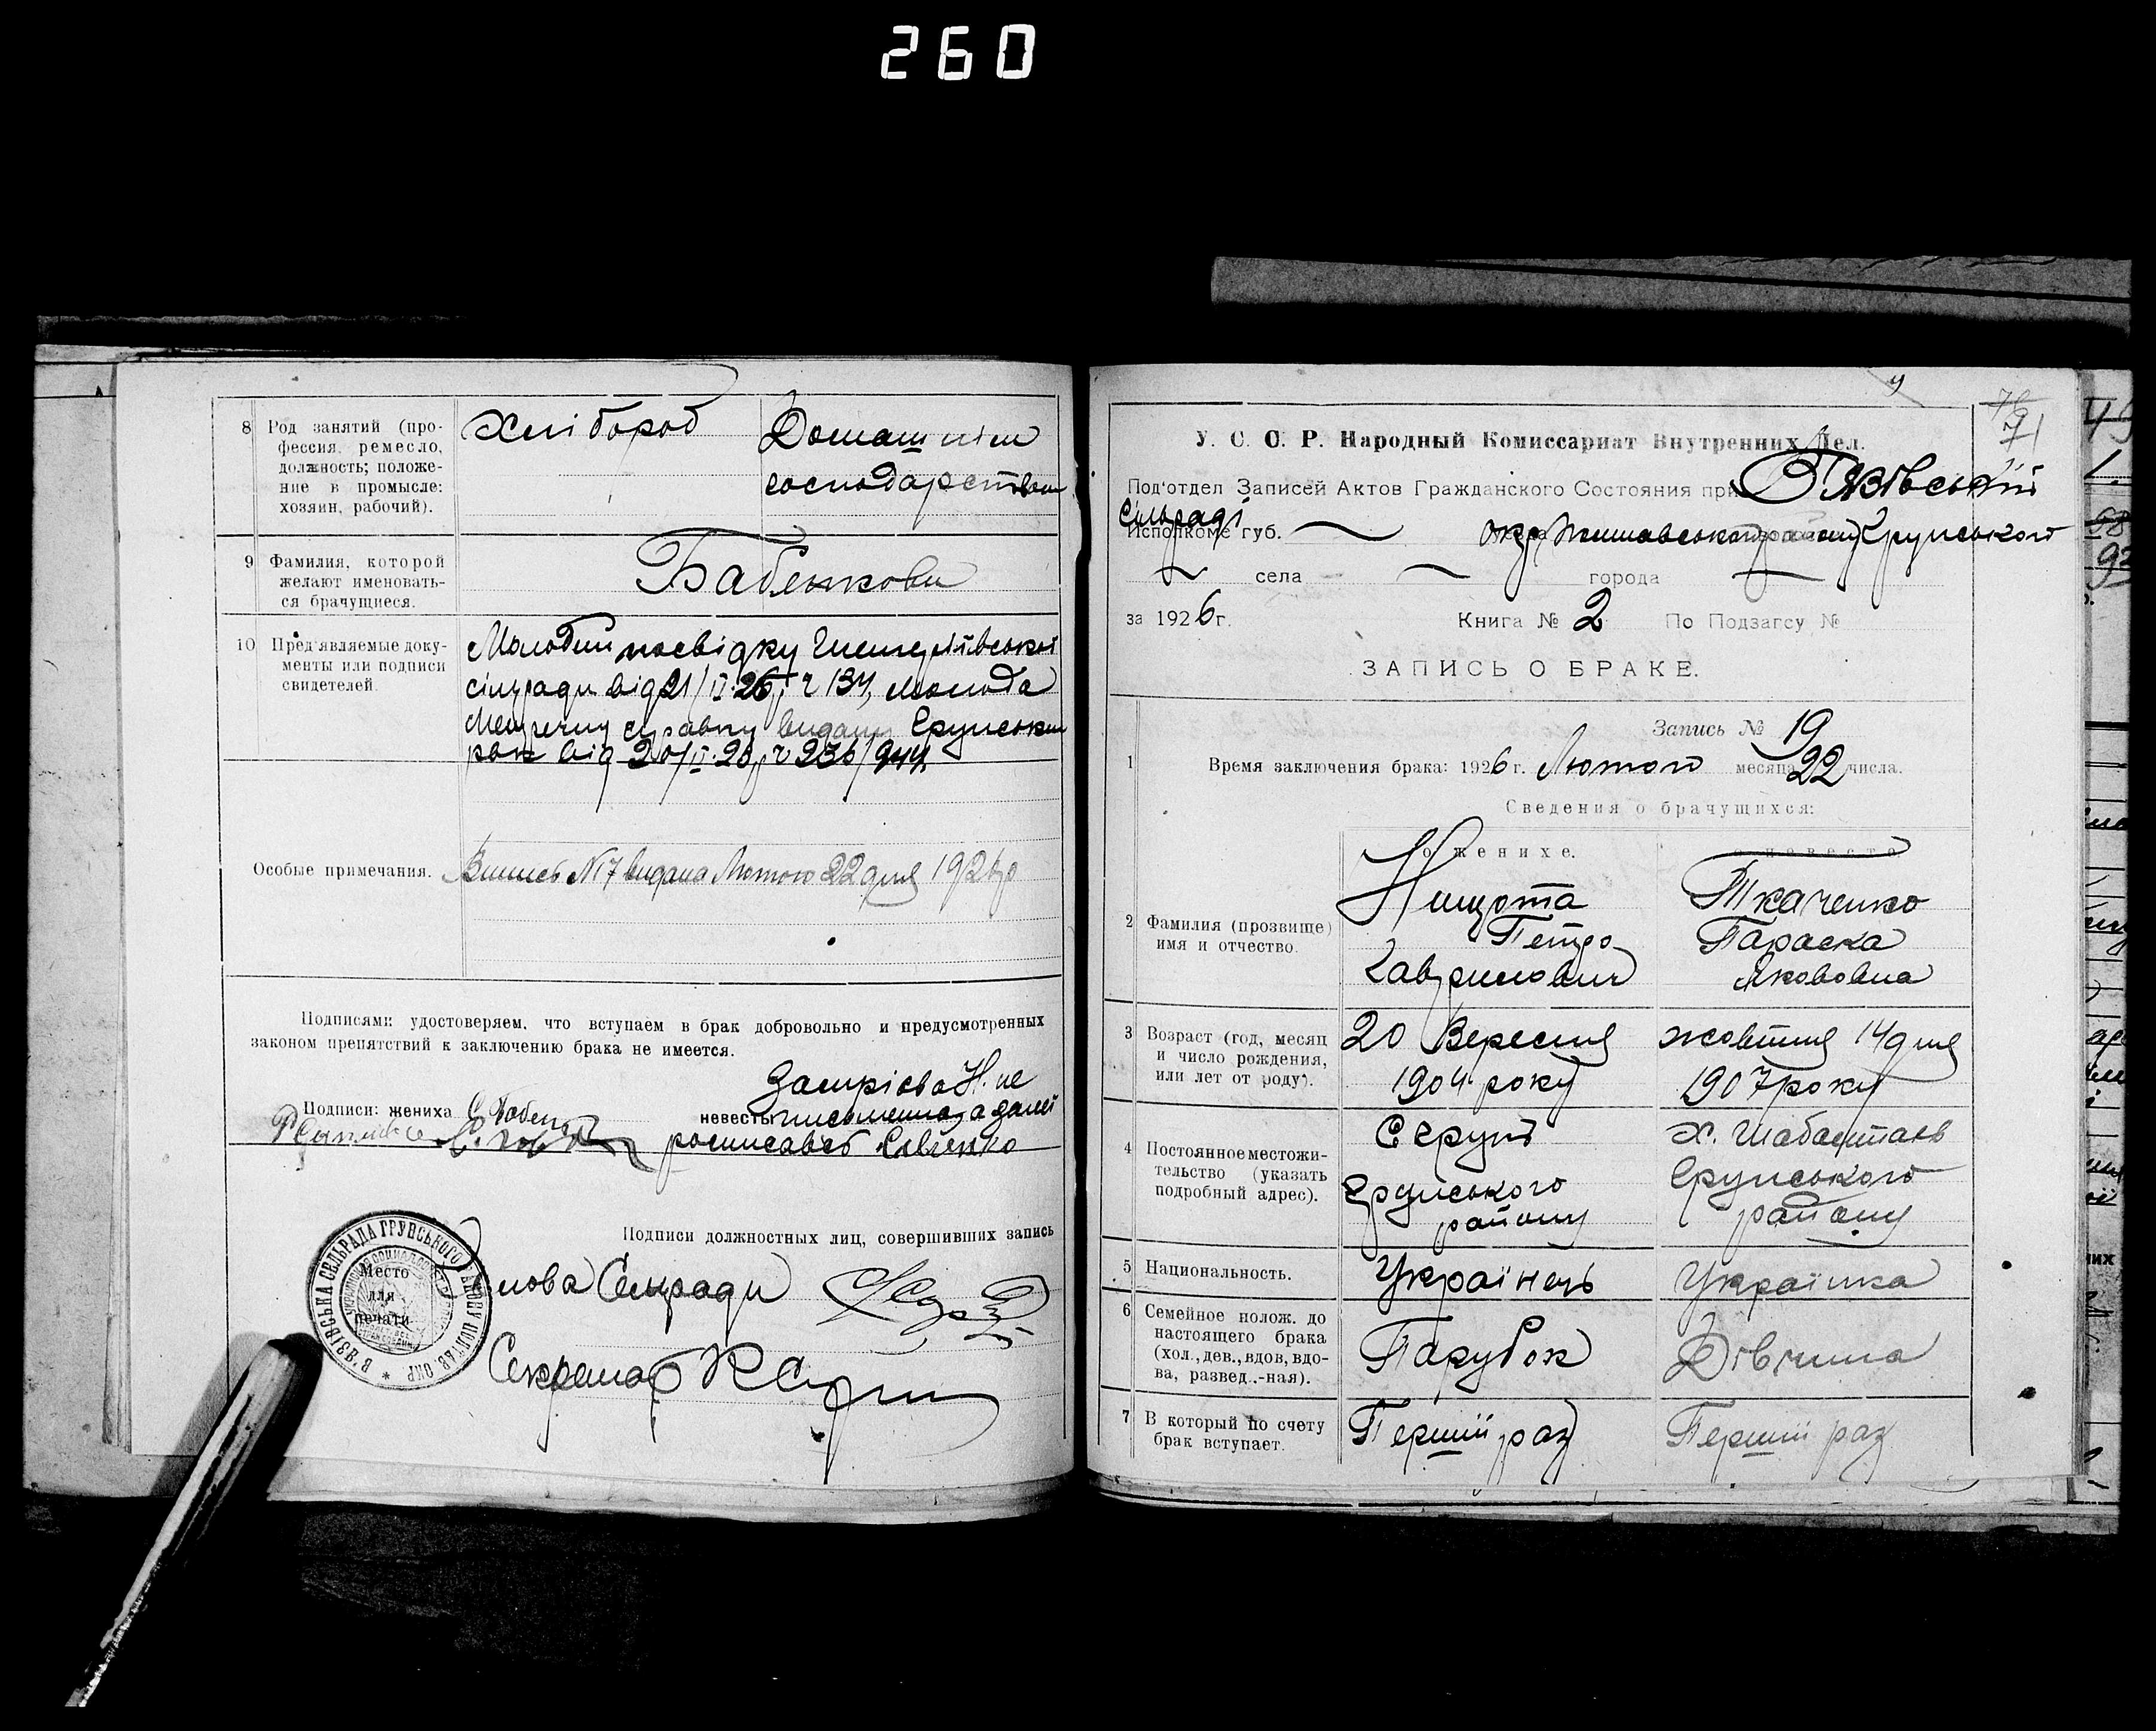 260
8 Род занятий (профессия, ремесло, должность; положение в промысле: хозяин, рабочий).
Хлібороб
Домашнім
господарством
9 Фамилия, которой желают именоваться брачущиеся.
Бабенкови
10 Пред'являемые документы или подписи свидетелей.
Молодий посвідку
сільради від 21/II-26 р ч 134, молода
Метричну справку видану Грунським
від 20/II-26 р ч 236/944
Особые примечания.
Випись N 17 видана Лютого 22 дня 1926 р
Подписями удостоверяем, что вступаем в брак добровольно и предусмотренных
законом препятствий к заключению брака не имеется.
Подписи: жениха
невесты
неписьменна, а за неї
росписавсь
Подписи должностных лиц, совершивших запись
Голова Сельради
Секретар
В'ЯЗІВСЬКА СЕЛЬРАДА ГРУНСЬКОГО РАЙОНУ ПОЛТАВ. ОКР. *
Место
для
печати
91
У. С. С. Р. Народный Комиссариат Внутренних Дел.
Под'отдел Записей Актов Гражданского Состояния при В'язівській
Сільраді
Исполкоме губ. окр. Полтавського району Грунського
села города
за 1926 г. Книга № 2 По Подзагсу №
ЗАПИСЬ О БРАКЕ.
Запись № 19
1 Время заключения брака: 1926 г. Лютого месяца 22 числа.
Сведения о брачущихся:
о женихе. о невесте.
2 Фамилия (прозвище) имя и отчество.
Нищота
Петро
Гаврилович
Ткаченко
Параска
Якововна
3 Возраст (год, месяц и число рождения, или лет от роду).
20 Вересня
1904 року
жовтня 14 дня
1907 року
4 Постоянное местожительство (указать подробный адрес).
С Грунь
Грунського
району
х. Шабалтаєв
Грунського
району
5 Национальность.
Українець
Українка
6 Семейное полож. до настоящего брака (хол., дев., вдов, вдова, развед.-ная).
Парубок
Дівчина
7 В который по счету брак вступает.
Перший раз
Перший раз